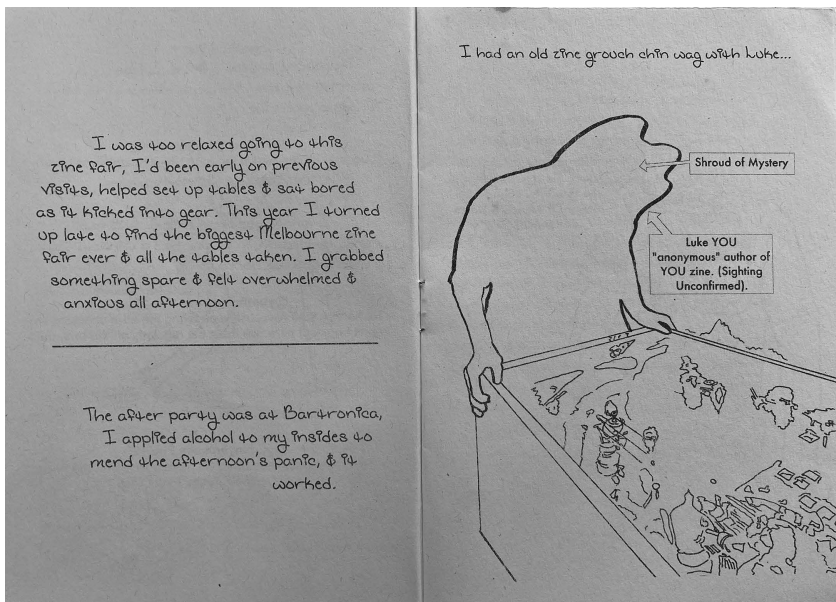 I was too relaxed going to this
zine fair, I'd been early on previous
visits, helped set up tables & sat bored
as it kicked into gear. This year I turned
up late to find the biggest Melbourne zine
fair ever & all the tables taken. I grabbed
something spare & felt overwhelmed &
anxious all afternoon.
The after party was at Bartronica,
I applied alcohol to my insides to
mend the afternoon's panic, & it
worked.
I had an old zine grouch chin wag with Luke...
Shroud of Mystery
Luke YOU
"anonymous" author of
YOU zine. (Sighting
Unconfirmed).